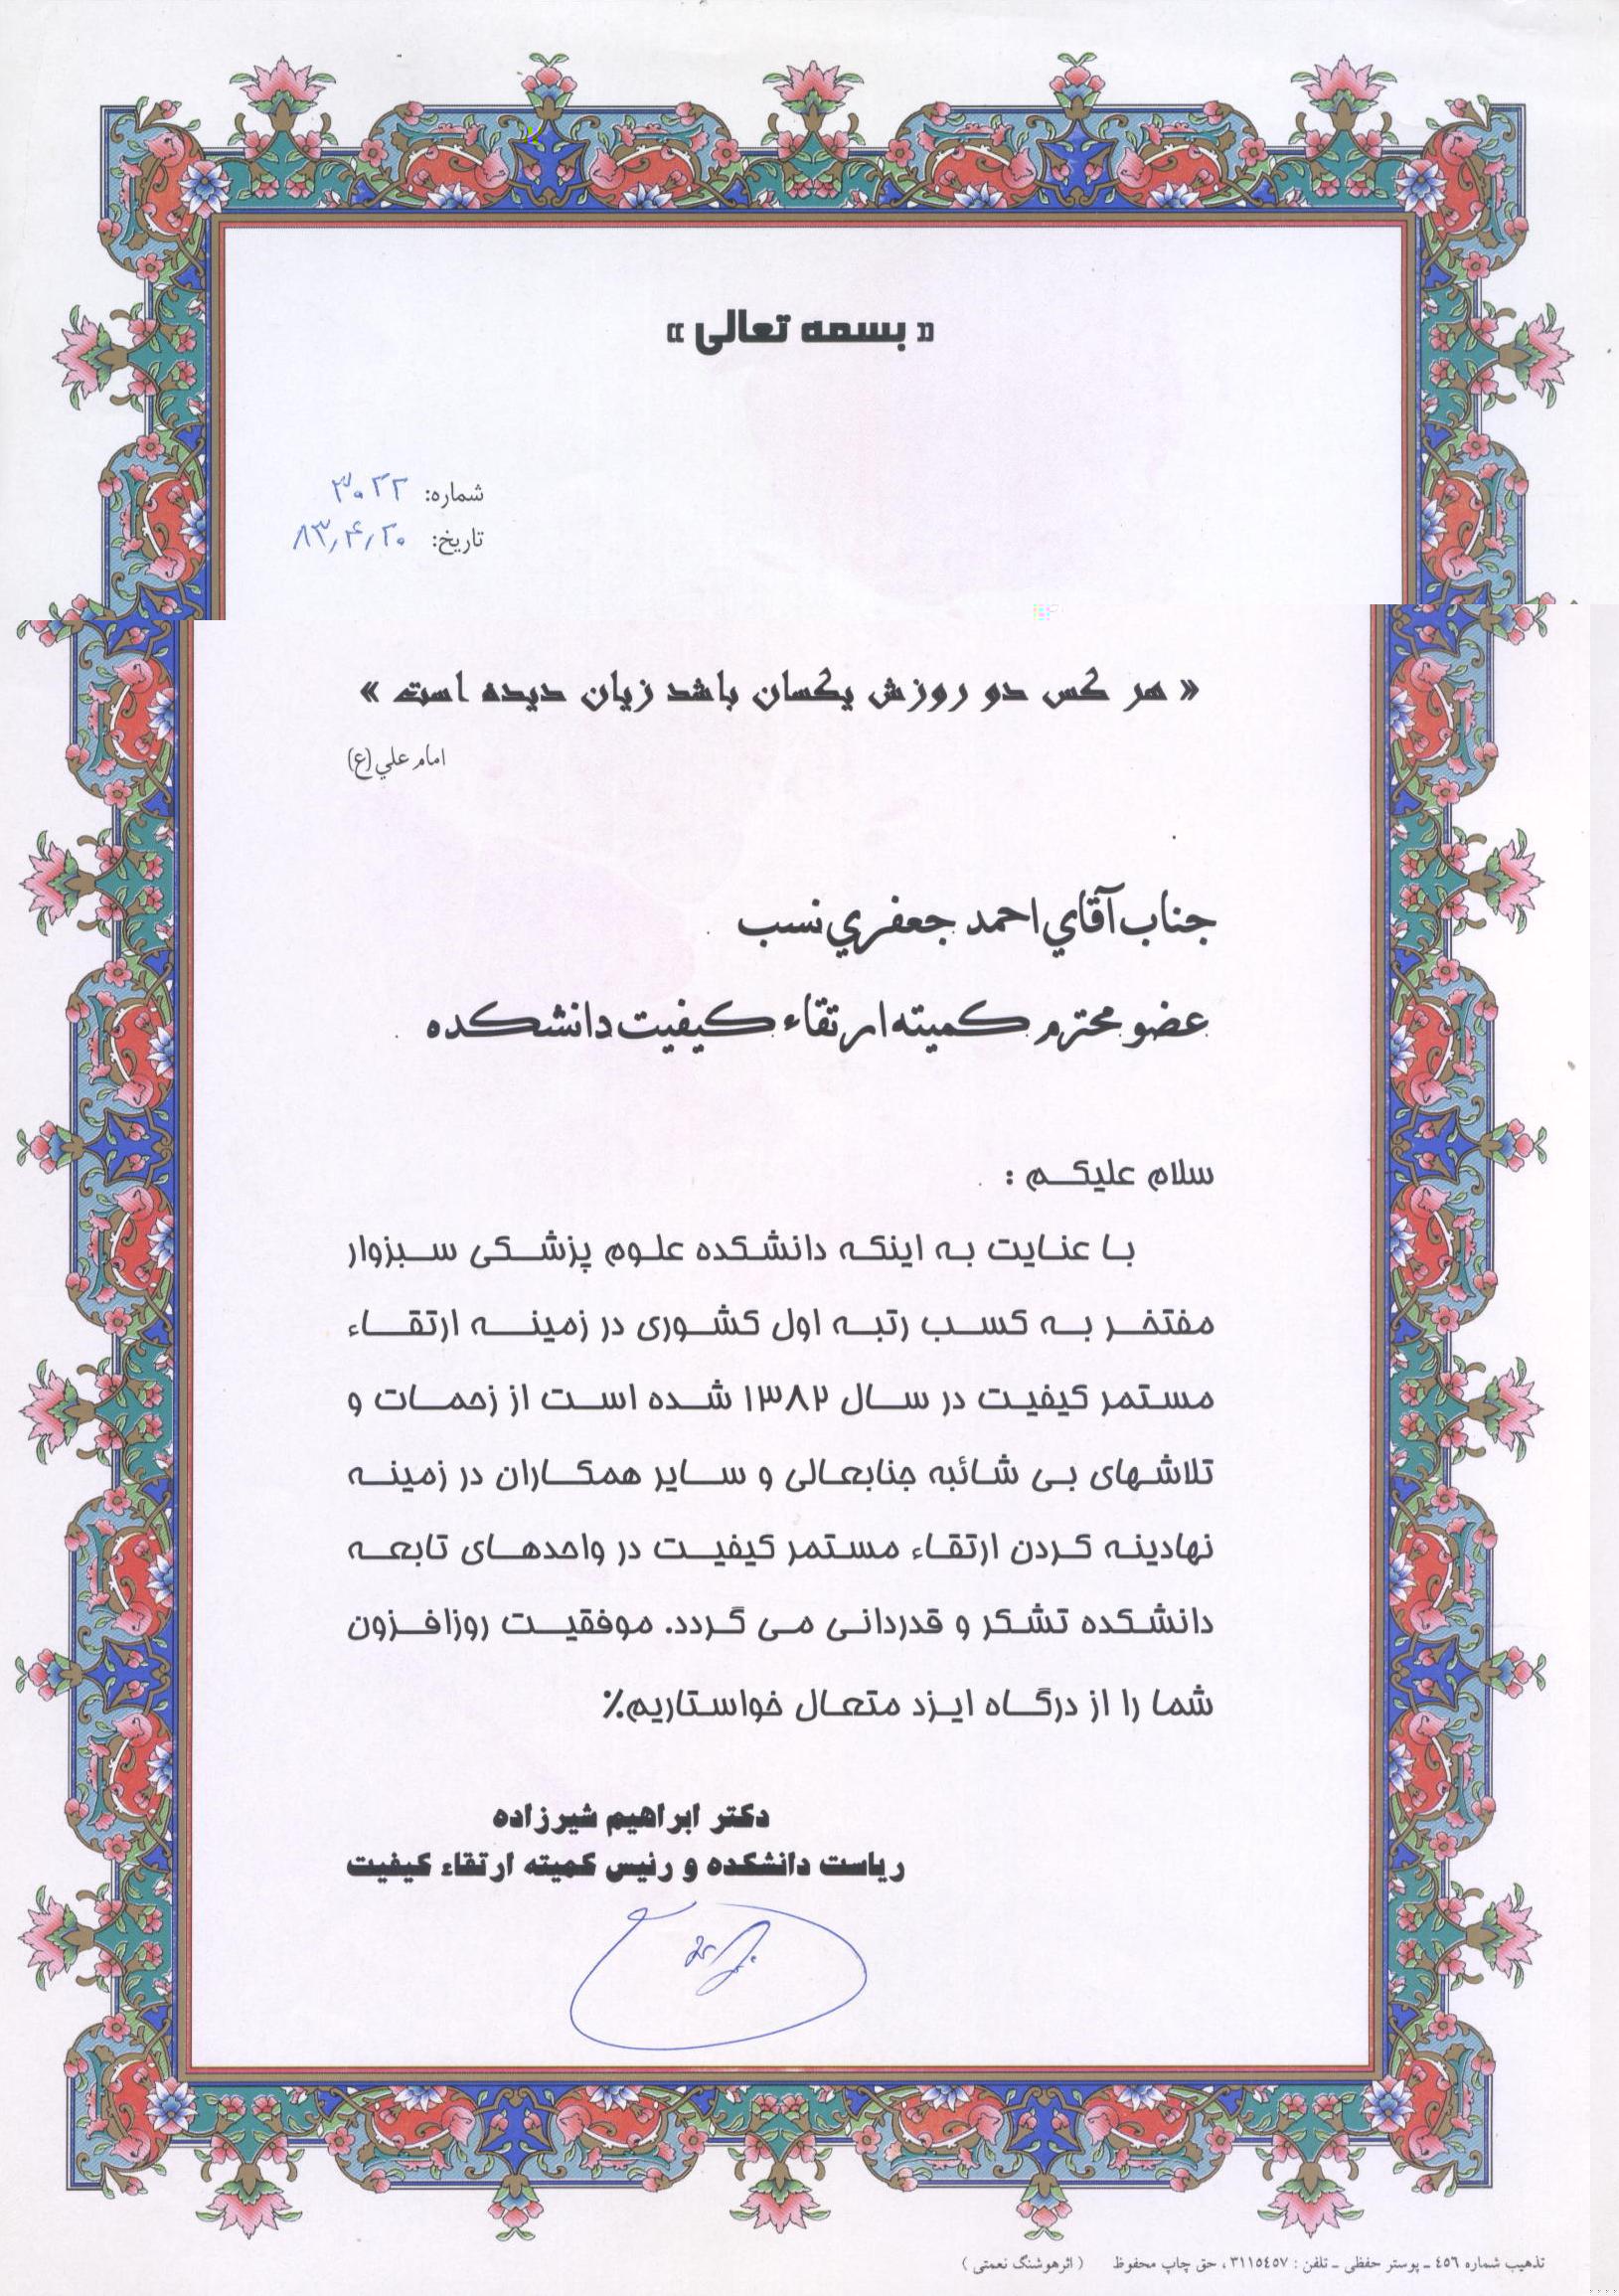 « بسمه تعالی »
شماره: ۳۰۲۲
تاریخ: ۸۳٫۴٫۲۰
« هر کس دو روزش یکسان باشد زیان دیده است »
امام علي (ع)
جناب آقاي احمد جعفري نسب
عضو محترم کمیته ارتقاء کیفیت دانشکده
سلام علیکم :
با عنایت به اینکه دانشکده علوم پزشکی سبزوار
مفتخر به کسب رتبه اول کشوری در زمینه ارتقاء
مستمر کیفیت در سال ۱۳۸۲ شده است از زحمات و
تلاشهای بی شائبه جنابعالی و سایر همکاران در زمینه
نهادینه کردن ارتقاء مستمر کیفیت در واحدهای تابعه
دانشکده تشکر و قدردانی می گردد. موفقیت روزافزون
شما را از درگاه ایزد متعال خواستاریم٪
دکتر ابراهیم شیرزاده
ریاست دانشکده و رئیس کمیته ارتقاء کیفیت
تذهیب شماره ٤٥٦ ـ پوستر حفظی ـ تلفن : ٣١١٥٤٥٧ ، حق چاپ محفوظ ( اثرهوشنگ نعمتی )